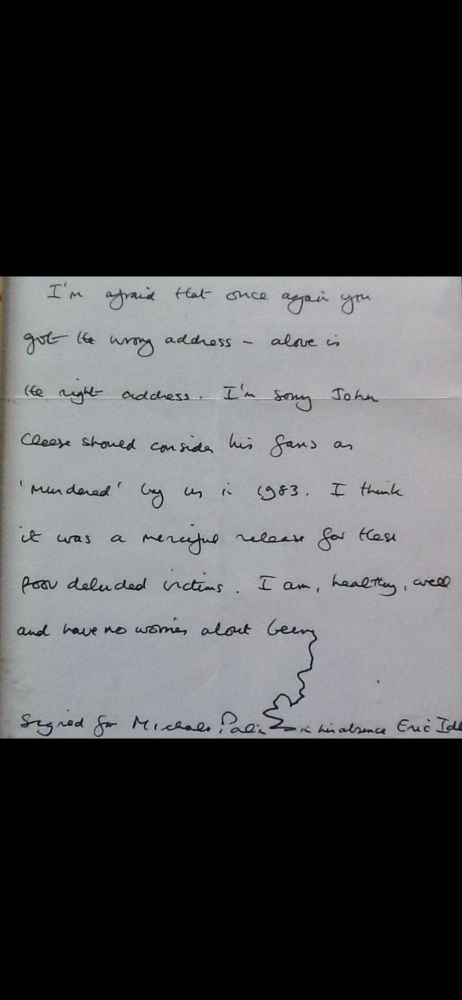 I'm afraid that once again you
got the wrong address – above is
the right address. I'm sorry John
Cleese should consider his fans as
'murdered' by us in 1983. I think
it was a merciful release for these
poor deluded victims. I am, healthy, well
and have no worries about being
Signed for Michael Palin in his absence Eric Idl